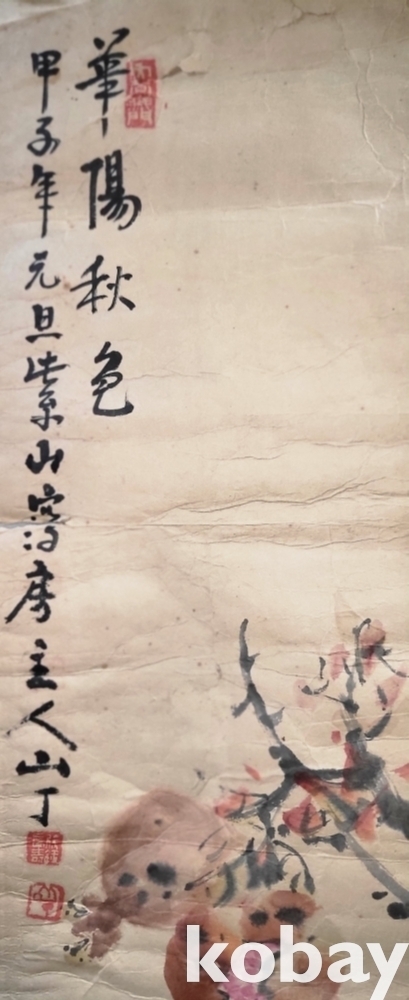 華陽秋色
甲子年元旦紫山寫房主人山丁
kobay